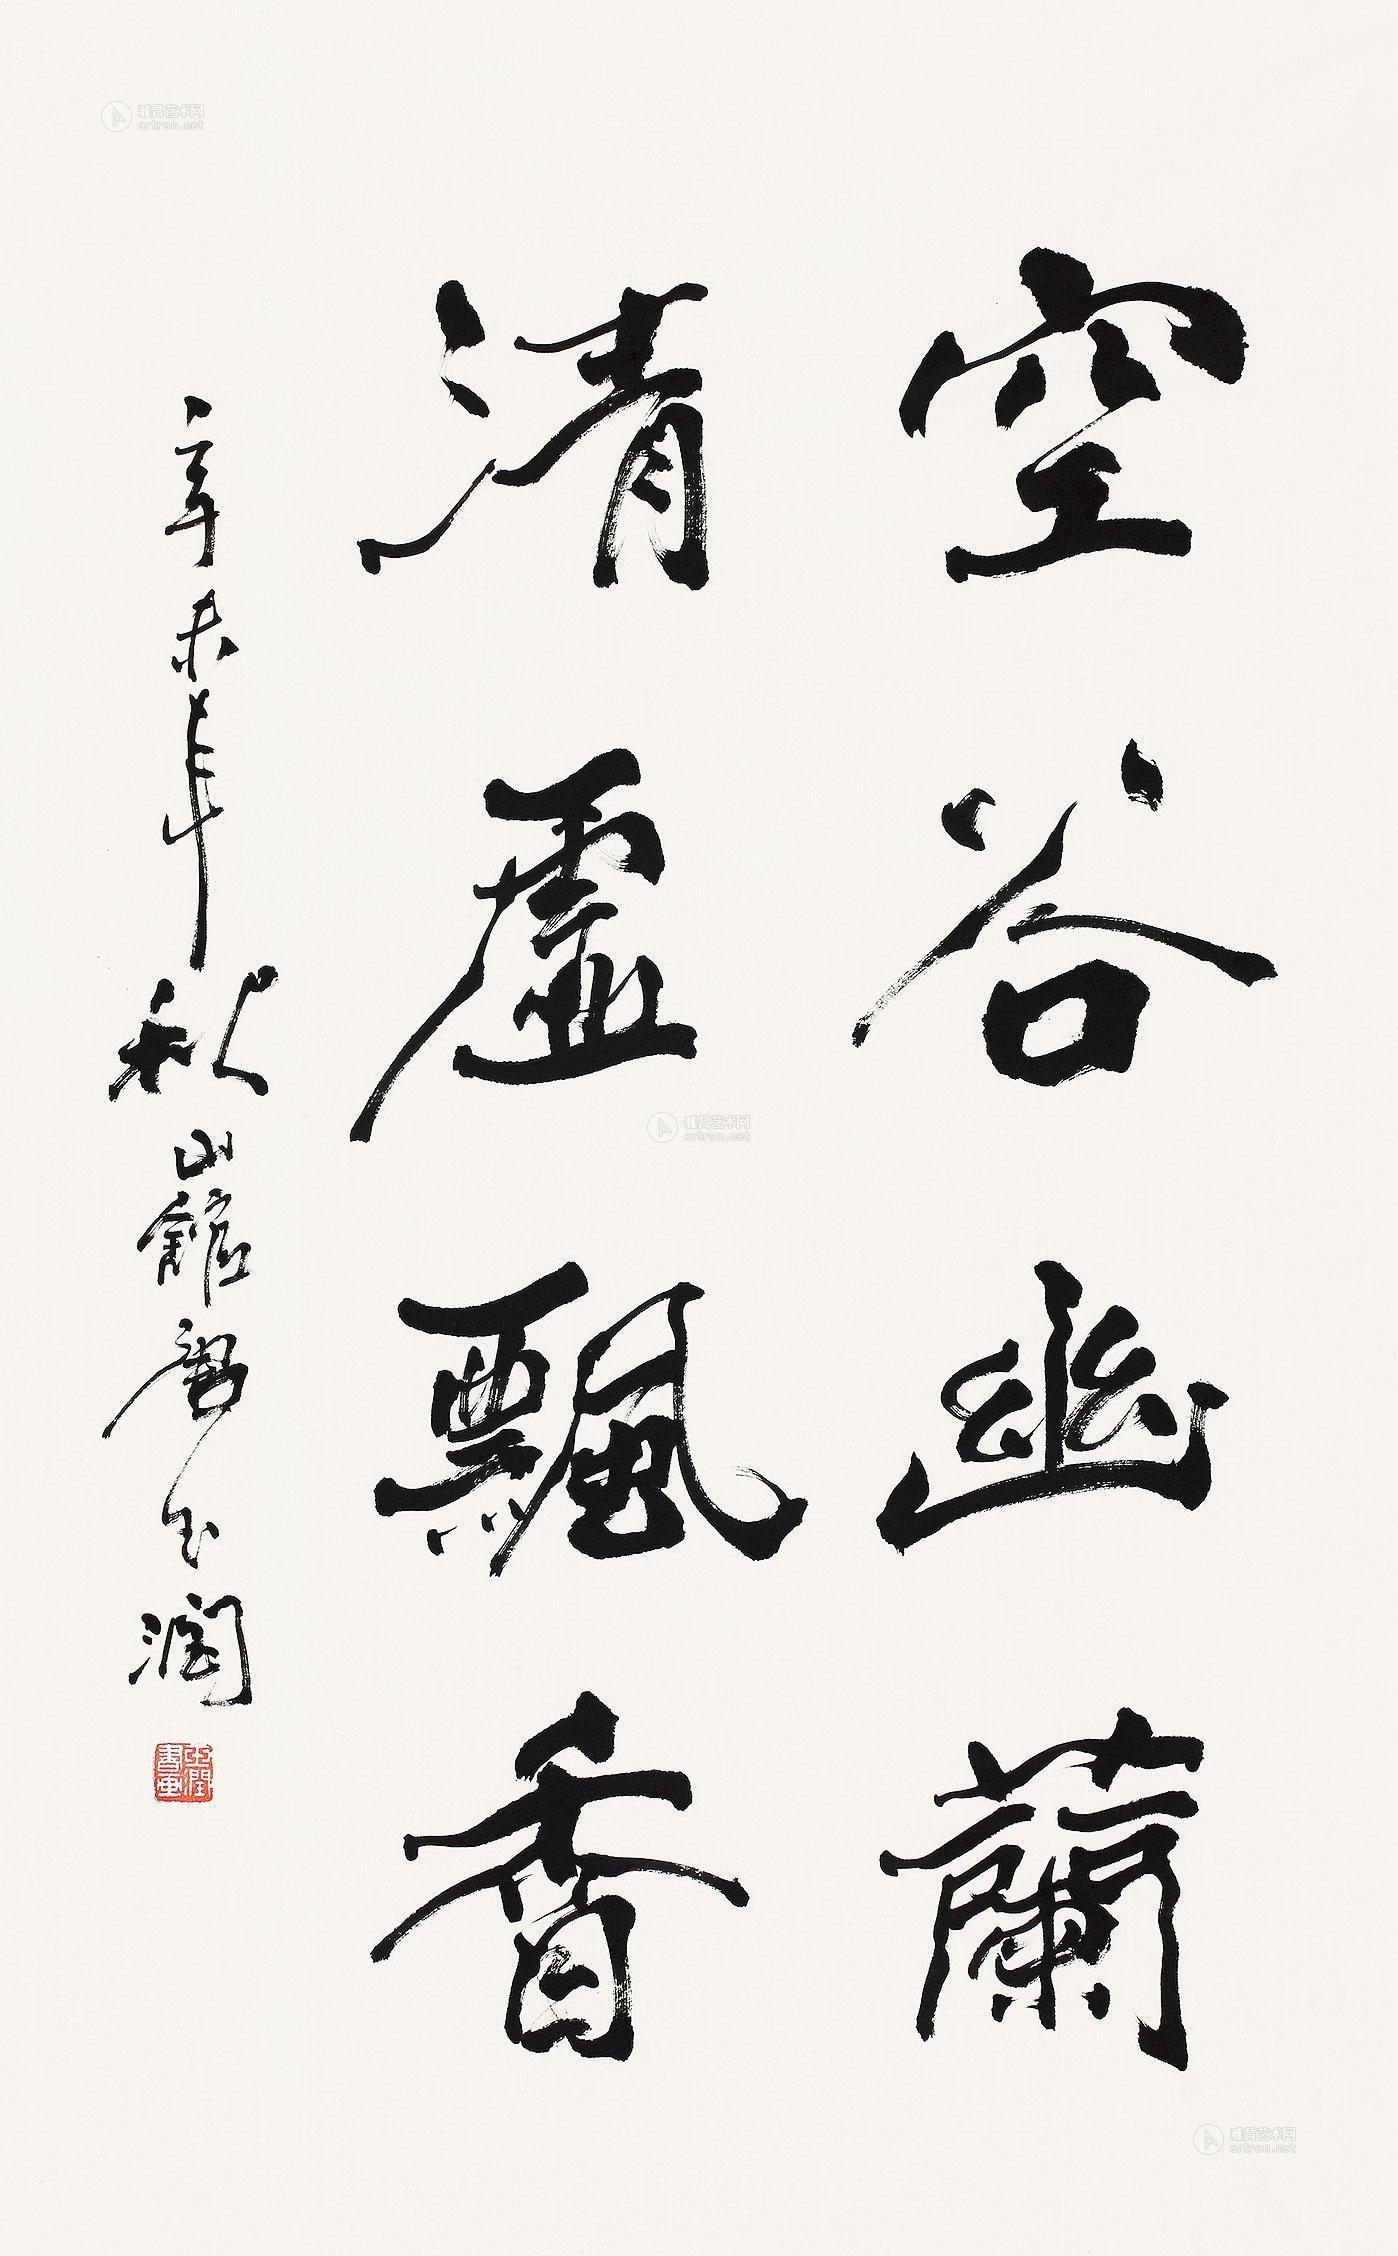 空谷幽蘭
清虛飄香
辛未年秋山館唐玉潤
玉潤書畫
雅昌艺术网
artron.net
雅昌艺术网
artron.net
雅昌艺术网
artron.net